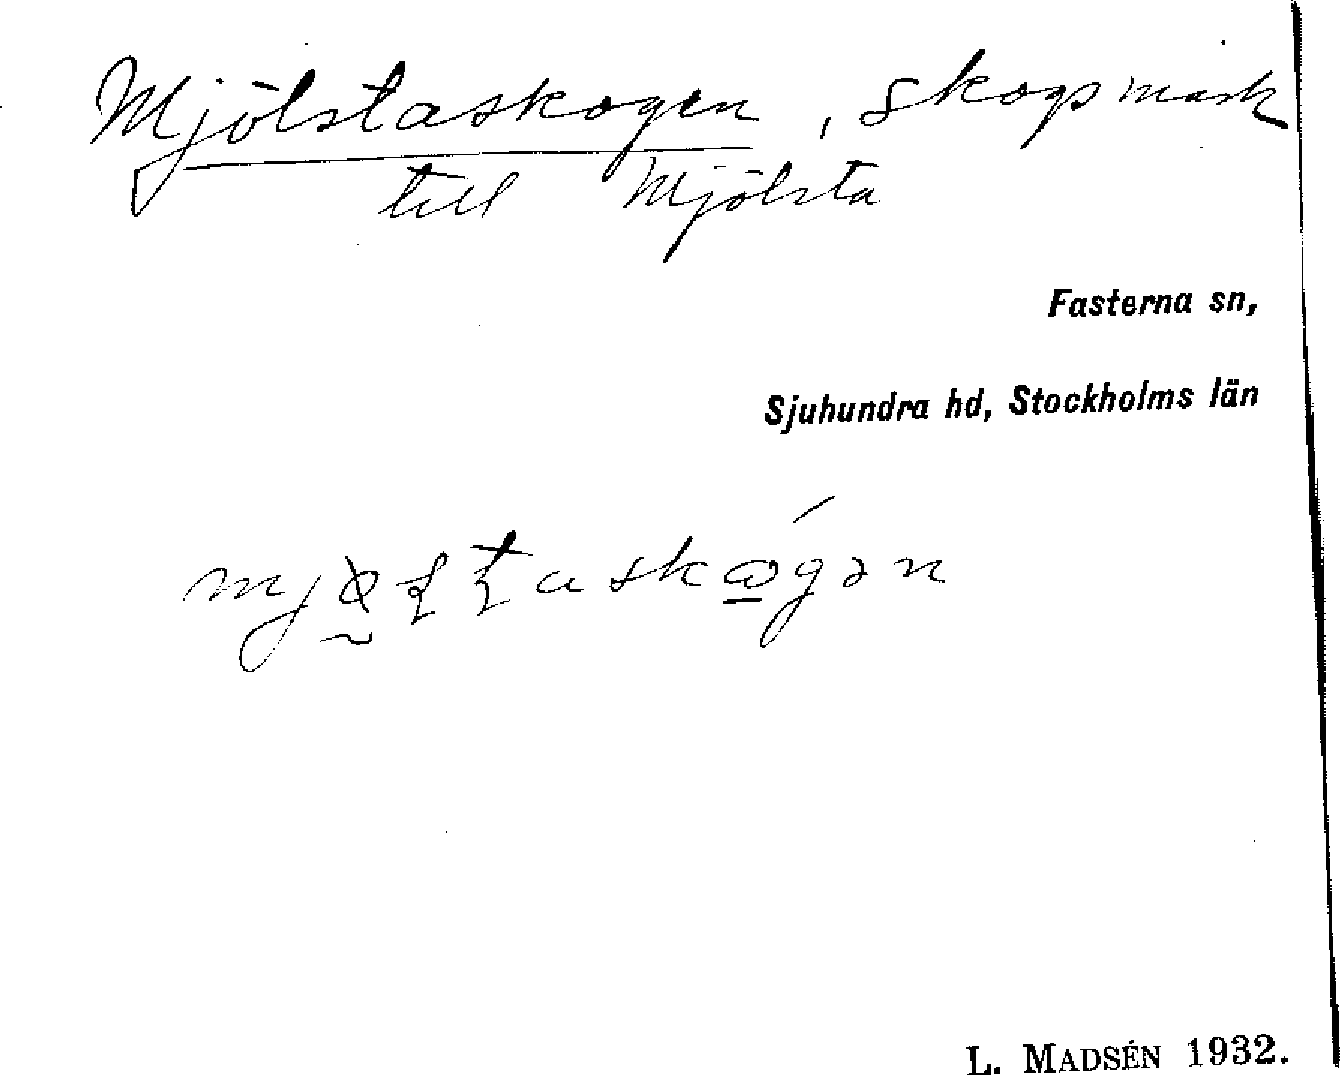 Mjölstaskogen, skogsmark
till Mjölsta
Fasterna sn,
Sjuhundra hd, Stockholms län
L. MADSÉN 1932.